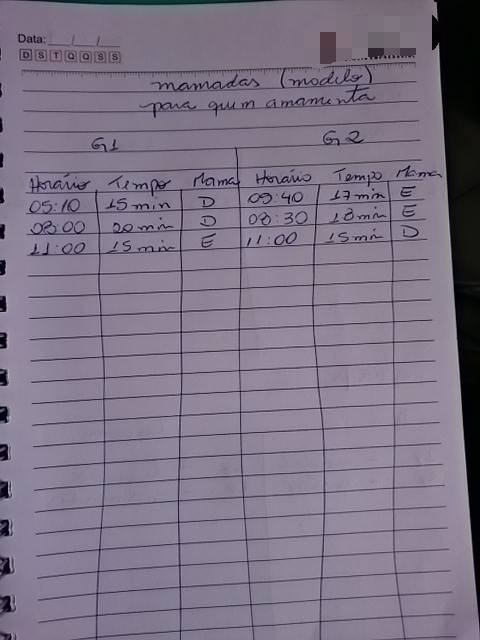 Data: / /
D S T Q Q S S
mamadas (modelo)
para quem amamenta
G1 G2
Horário Tempo Mama Horário Tempo Mama
05:10 15 min D 05:40 17 min E
08:00 20 min D 08:30 18 min E
11:00 15 min E 11:00 15 min D